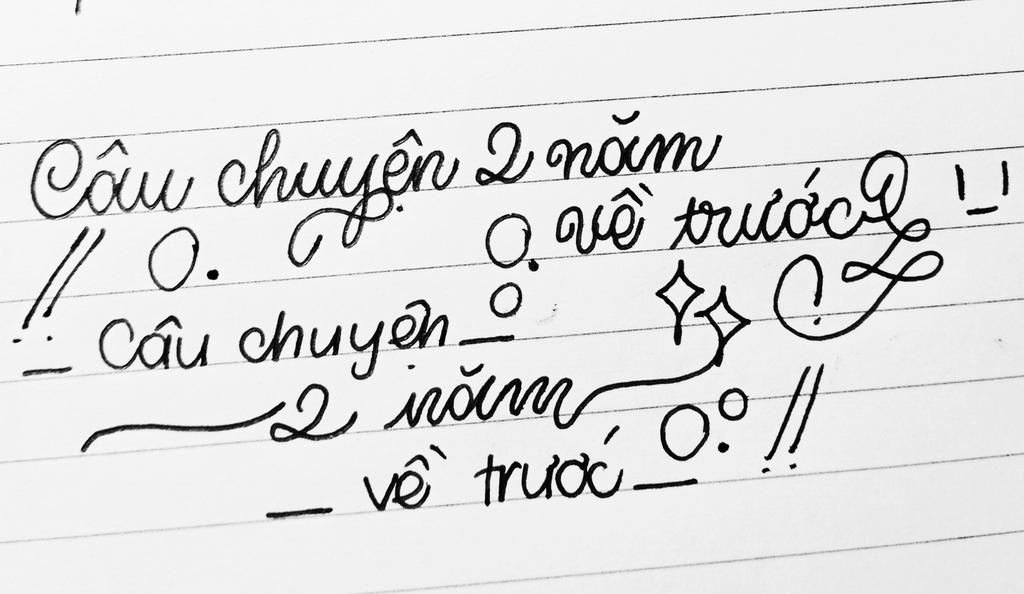 Câu chuyện 2 năm
về trước
Câu chuyện
2 năm
về trước